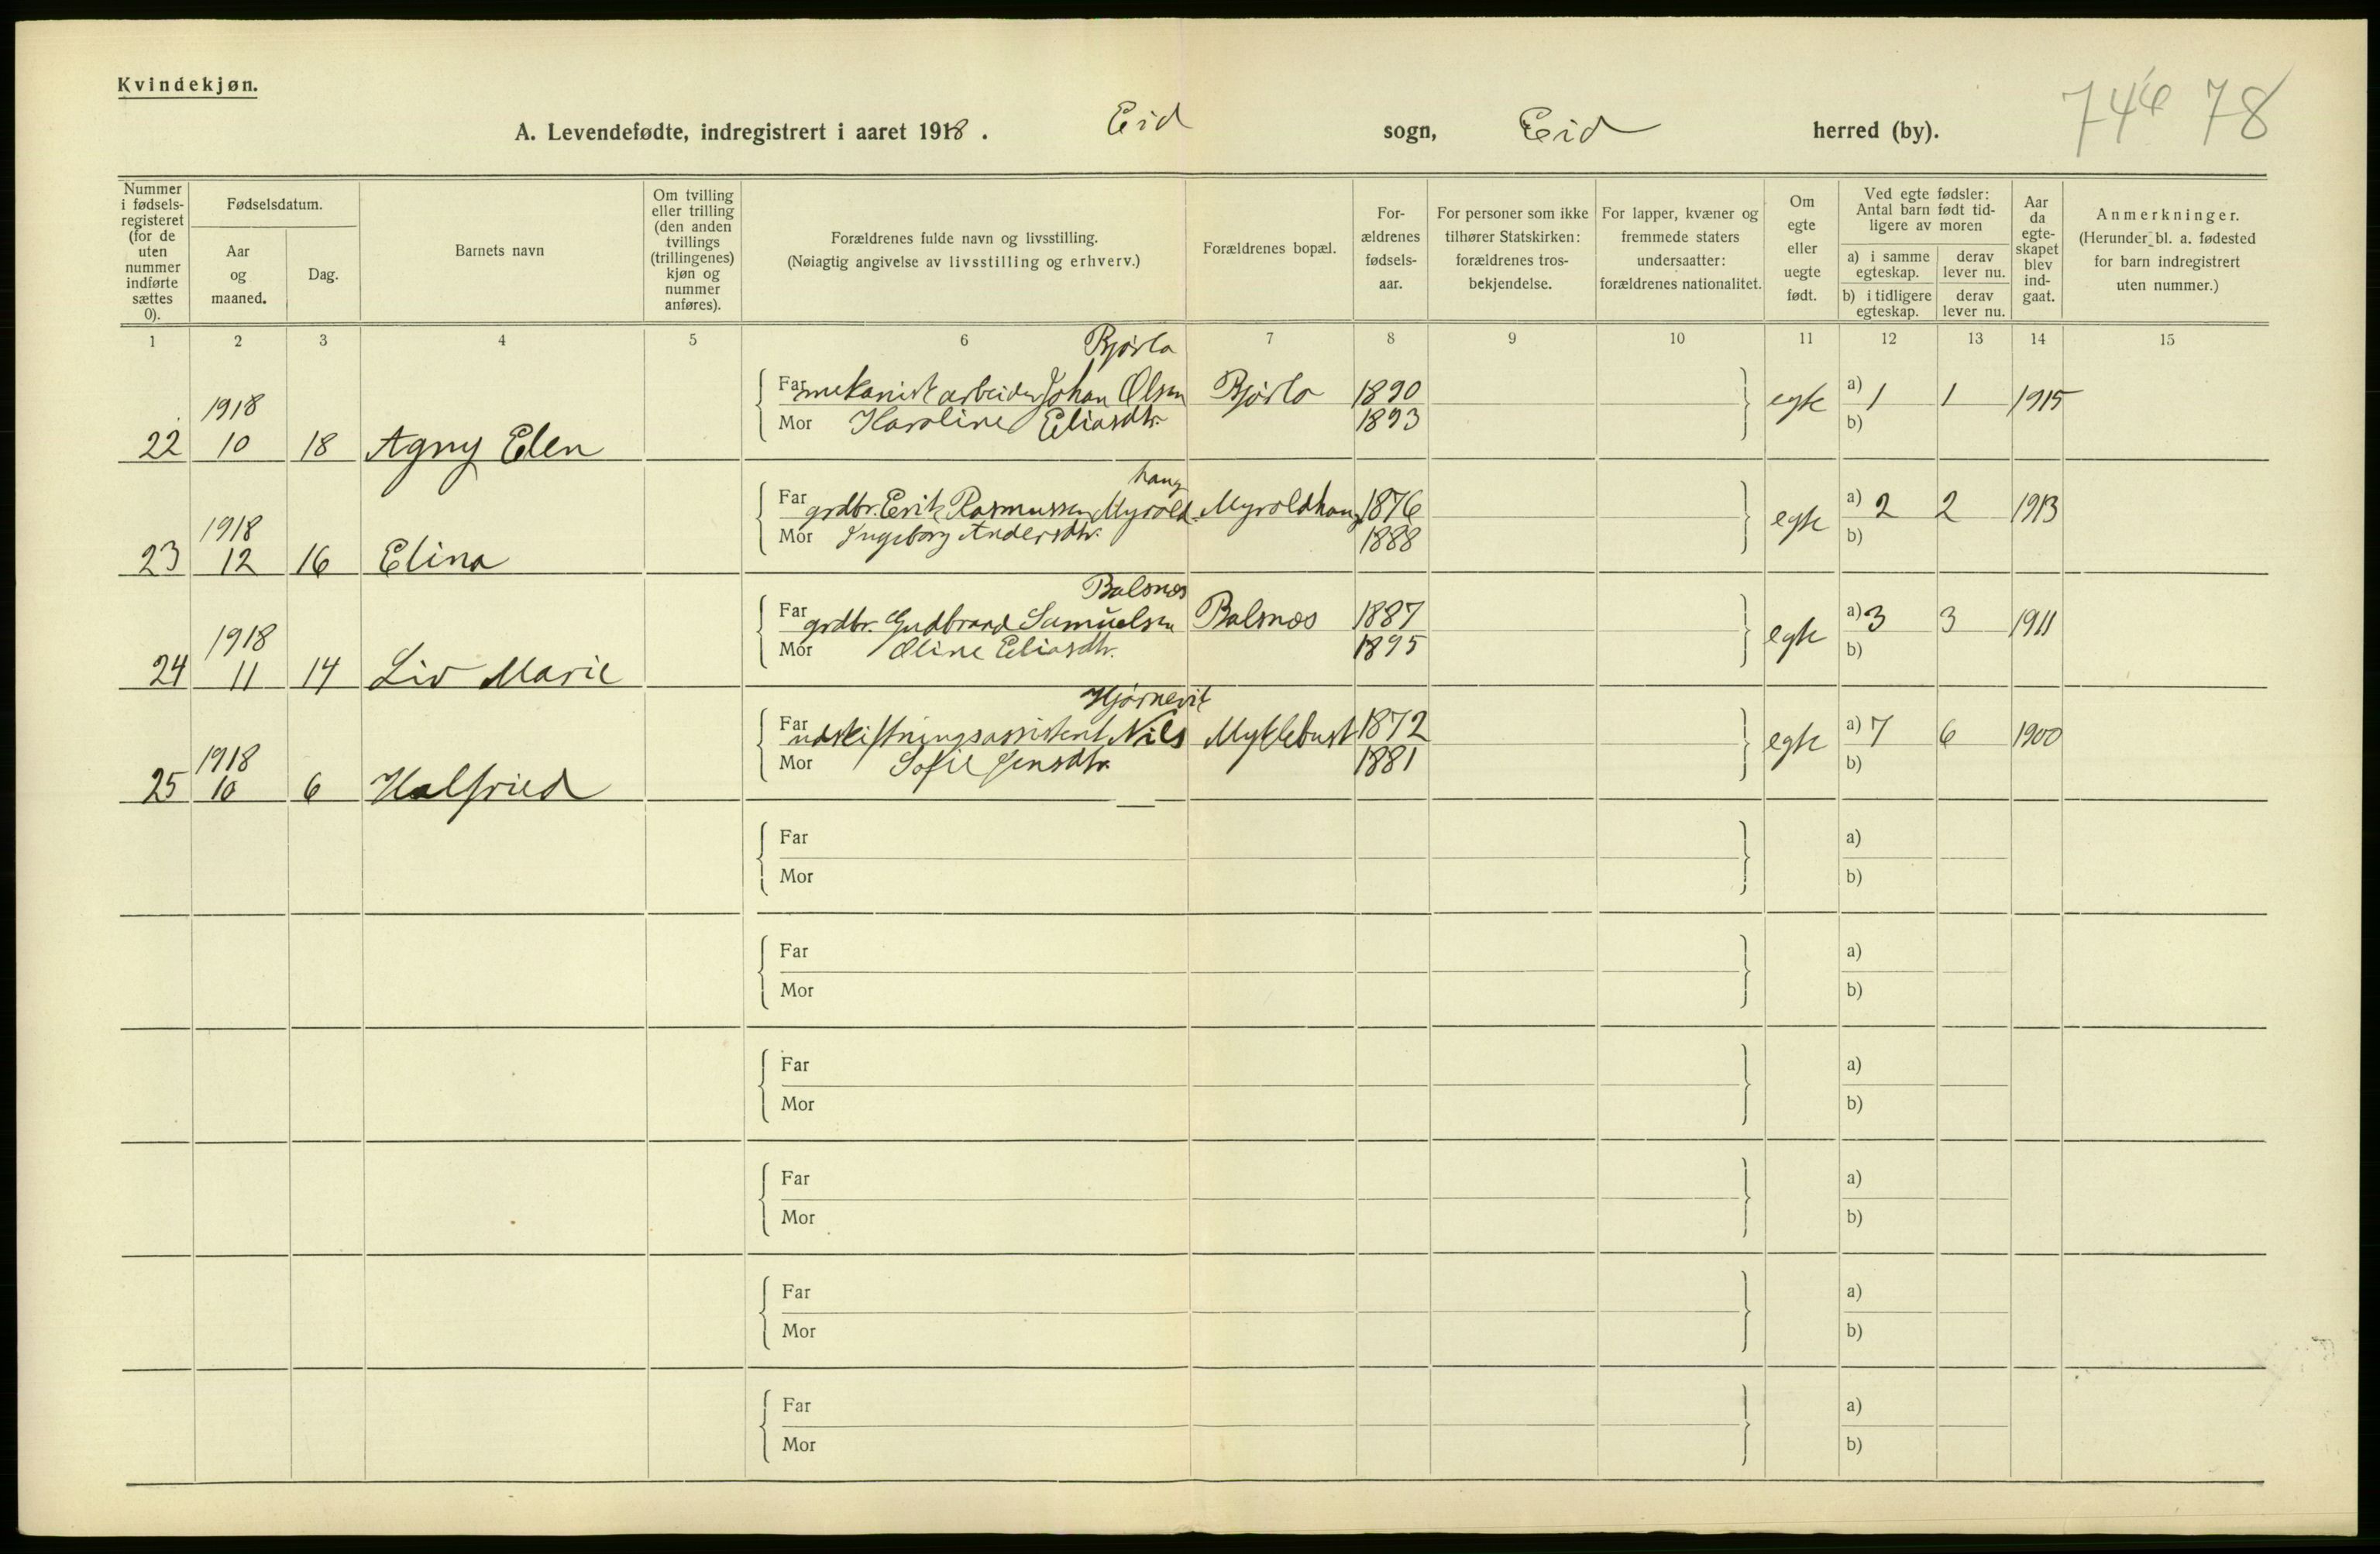 Kvindekjøn.
A. Levendefødte, indregistrert i aaret 1918. Eid sogn, Eid herred (by).
746 78
Nummer i fødselsregisteret (for de uten nummer indførte sættes 0).
Fødselsdatum.
Aar og maaned.
Dag.
Barnets navn
Om tvilling eller trilling (den anden tvillings (trillingenes) kjøn og nummer anføres).
Forældrenes fulde navn og livsstilling.
(Nøiagtig angivelse av livsstilling og erhverv.)
Forældrenes bopæl.
Forældrenes fødselsaar.
For personer som ikke tilhører Statskirken: forældrenes trosbekjendelse.
For lapper, kvæner og fremmede staters undersaatter: forældrenes nationalitet.
Om egte eller uegte født.
Ved egte fødsler: Antal barn født tidligere av moren
a) i samme egteskap. derav lever nu.
b) i tidligere egteskap. derav lever nu.
Aar da egteskapet blev indgaat.
Anmerkninger.
(Herunder bl. a. fødested for barn indregistrert uten nummer.)
1 2 3 4 5 6 7 8 9 10 11 12 13 14 15
Bjørlo
1918
Far mekanisk arbeider Johan Olsen Bjørlo 1890 egte a) 1 1 1915
Mor Karoline Eliasdtr. 1893 b)
22 10 18 Agny Elen
haug
1918
Far grdbr. Erik Rasmussen Myrold. Myroldhaug 1876 egte a) 2 2 1913
Mor Ingeborg Andersdtr. 1888 b)
23 12 16 Elina
Balsnes
1918
Far grdbr. Gudbrand Samuelsen Balsnes 1887 egte a) 3 3 1911
Mor Oline Eliasdtr. 1895 b)
24 11 14 Liv Marie
Hjørnevik
1918
Far udskiftningsassistent Nils Myklebust 1872 egte a) 7 6 1900
Mor Sofie Jensdtr. 1881 b)
25 10 6 Halfried
Far a)
Mor b)
Far a)
Mor b)
Far a)
Mor b)
Far a)
Mor b)
Far a)
Mor b)
Far a)
Mor b)